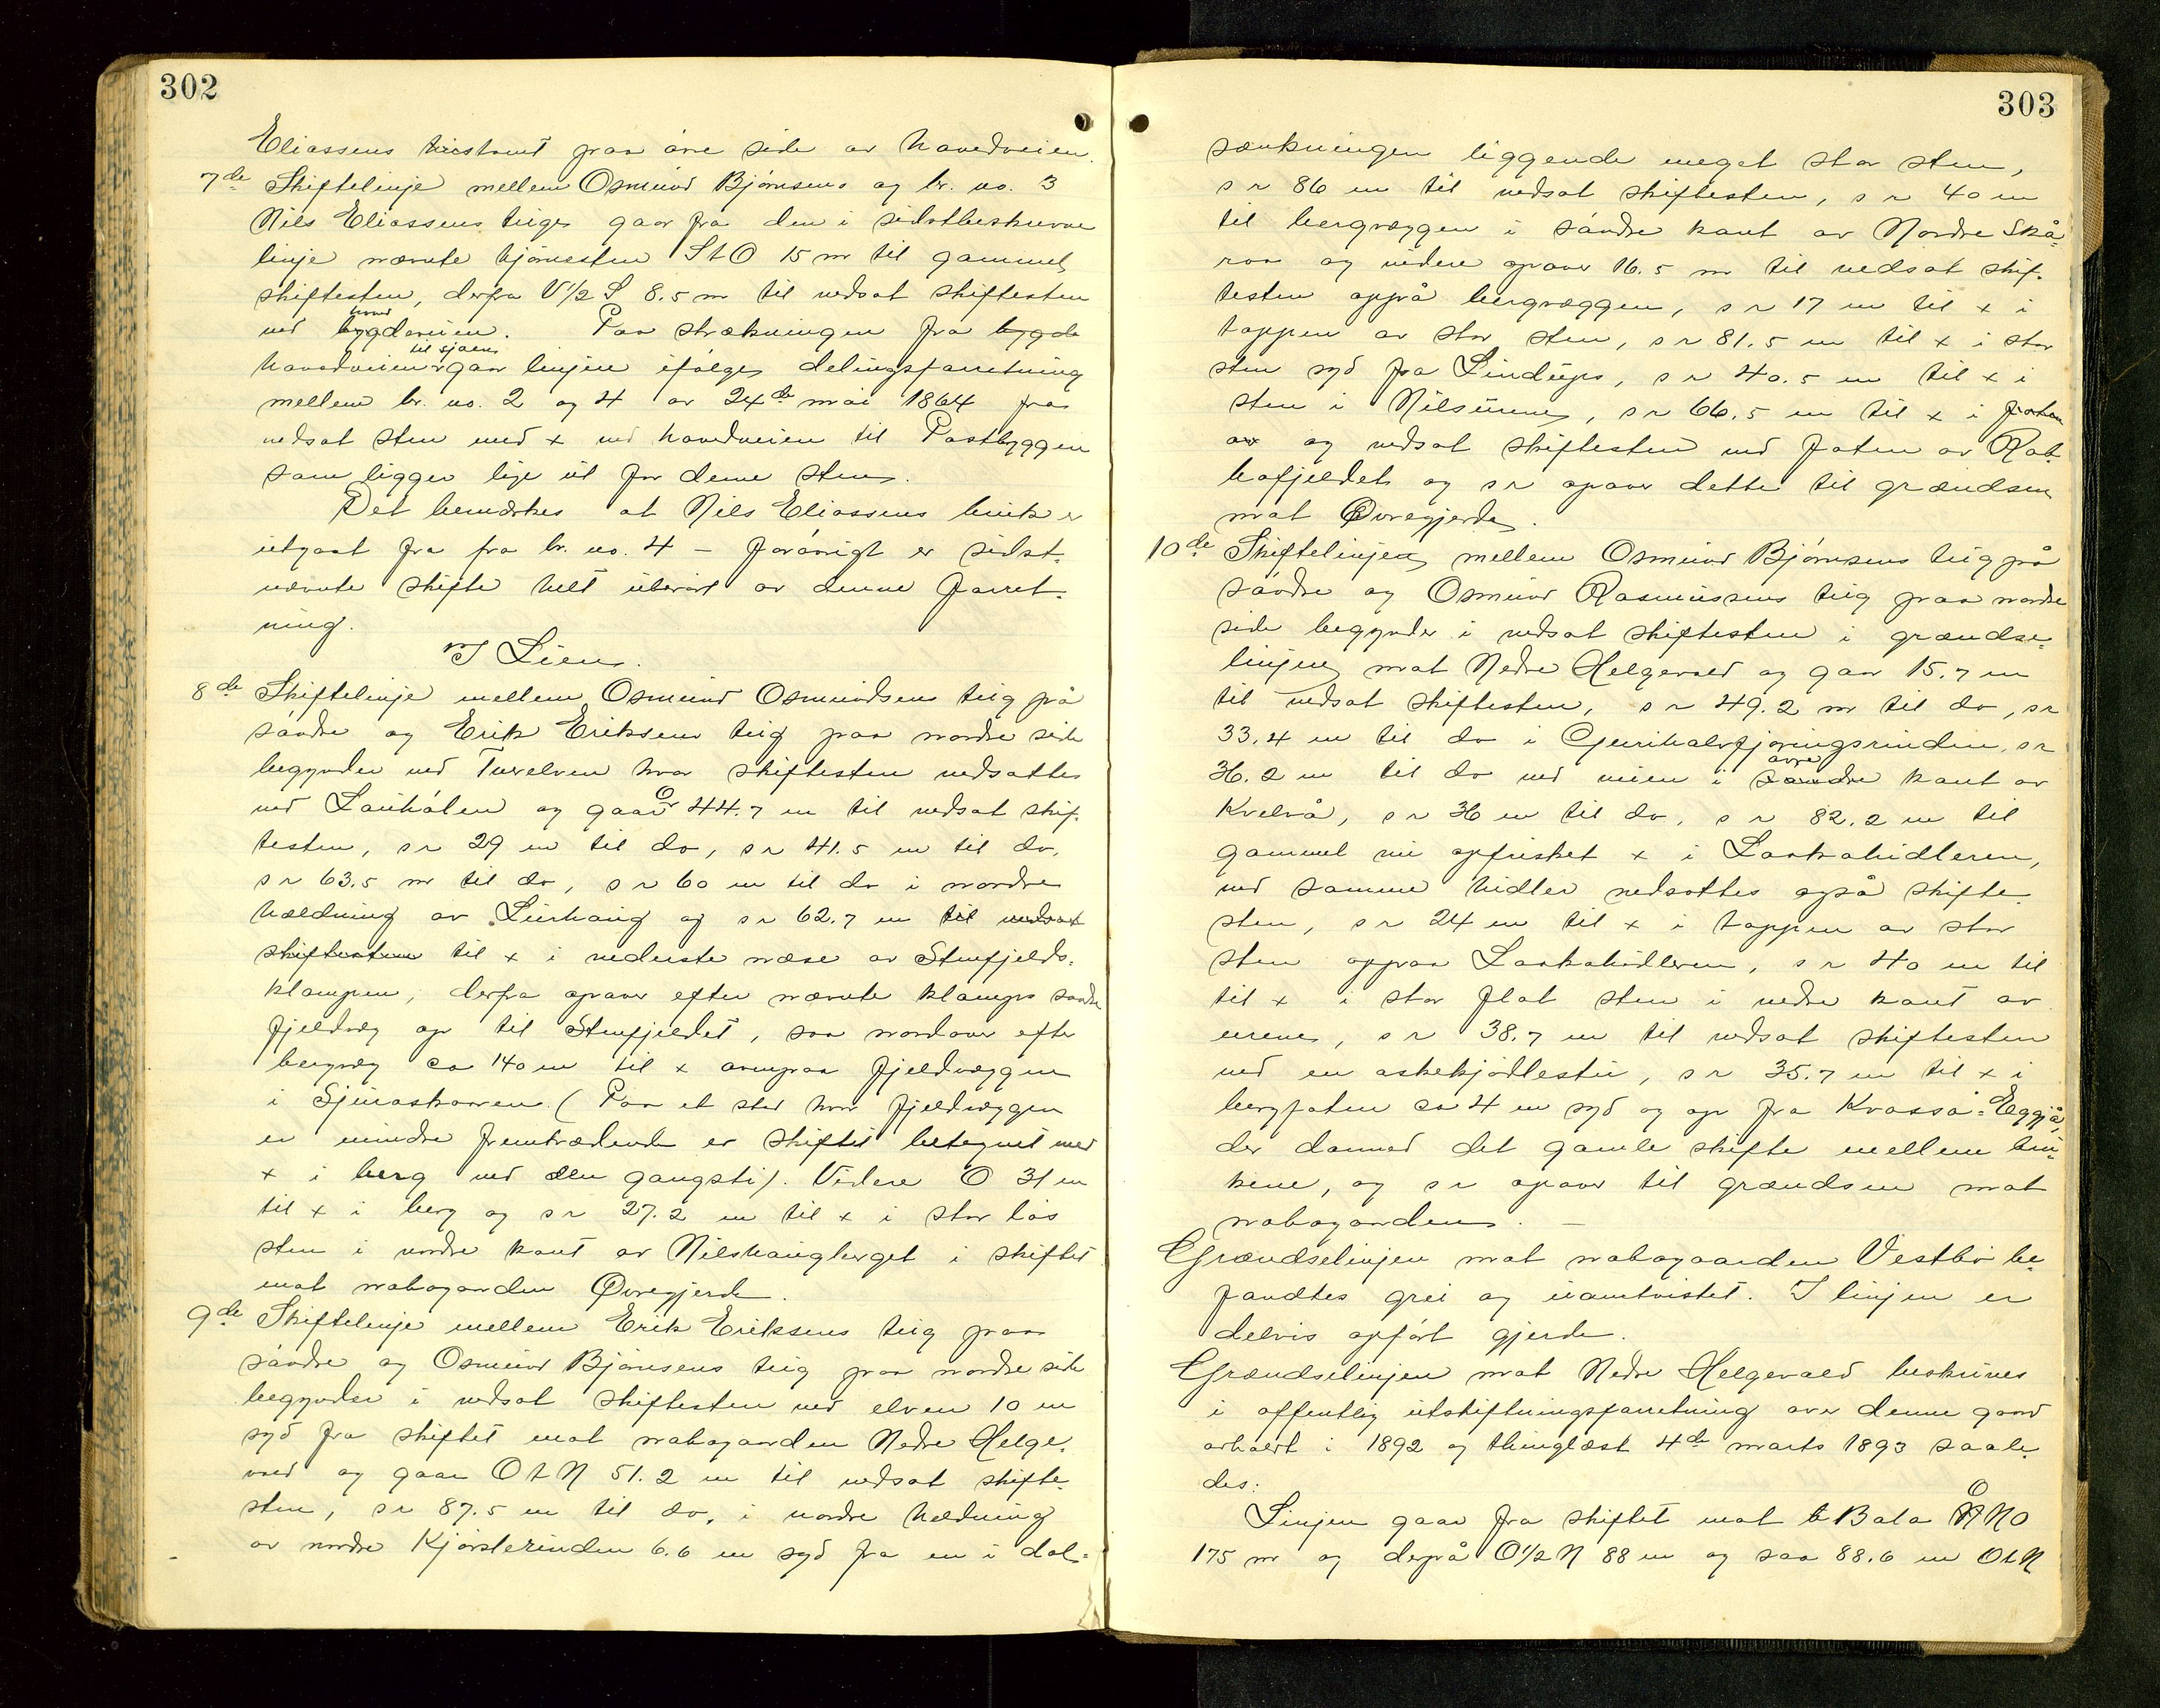 302
Eliassens paa øvre side av hovedveien.
7de Skiftelinje mellem Osmund Bjørnsens og br. no. 3
Nils Eliassens teiger gaar fra den i sidstbeskrevne
linje nævnte hjørnesten StO 15 m til gammel
skiftesten, derfra V1/2 S 8.5 m til nedsat skiftesten
ved hoved bygdaveien. Paa strækningen fra bygda
hovedveien til sjøen gaar linjen ifølge delingsforretning
mellem br. no. 2 og 4 av 24de mai 1864 fra
nedsat sten med x ved hovedveien til Postbryggen
som ligger lige ut for denne sten.
Det bemerkes at Nils Eliassens bruk er
utgaat fra fra br. no. 4 – forøvrigt er sidst-
nævnte skifte helt uberørt av denne forret-
ning.
I Lien.
8de Skiftelinje mellem Osmund Osmundsens teig på
søndre og Erik Eriksens teig paa nordre side
begynder ved Tuvelven hvor skiftesten nedsattes
ved Lauhålen og gaar O 44.7 m til nedsat skif-
testen, s r 29 m til do, s r 41.5 m til do,
s r 63.5 m til do, s r 60 m til do i nordre
hældning av Liarhaug og s r 62.7 m til nedsat
skiftesten til x i nederste næse av Stenfjelds-
klampen, derfra opover efter nævnte klamps søndre
fjeldvæg op til Stenfjeldet, saa nordover efter
bergvæg ca 140 m til x ovenpaa fjeldvæggen
i Sjuraskoren (Paa et sted hvor fjeldvæggen
er mindre fremtrædende er skiftet betegnet med
x i berg ved den gangsti). Videre O 31 m
til x i berg og s r 27.2 m til x i stor løs
sten i nordre kant av Nilshaugberget i skiftet
mot nabogaarden Øvregjerde.
9de Skiftelinje mellem Erik Eriksens teig paa
søndre og Osmund Bjørnsens teig paa nordre side
begynder i nedsat skiftesten ved elven 10 m
syd fra skiftet mot nabogaarden Nedre Helge-
vold og gaar OtN 51.2 m til nedsat skifte-
sten, s r 87.5 m til do, i nordre hældning
av nordre Kjørsterinden 6.6 m syd fra en i dal-
303
sænkningen liggende meget stor sten,
s r 86 m til nedsat skiftesten, s r 40 m
til bergvæggen i søndre kant av Nordre Skå-
roa og videre opover 16.5 m til nedsat skif-
testen oppå bergvæggen, s r 17 m til x i
toppen av stor sten, s r 81.5 m til x i stor
sten syd fra Lindups, s r 40.5 m til x i
sten i Nilsurene, s r 66.5 m til x i
og nedsat skiftesten ved foten av Rab-
bafjeldet og s r opover dette til grændsen
mot Øvregjerde.
10de Skiftelinjen mellem Osmund Bjørnsens teig på
søndre og Osmund Rasmussens teig paa nordre
side begynder i nedsat skiftesten i grændse-
linjen mot Nedre Helgevold og gaar 15.7 m
til nedsat skiftesten, s r 49.2 m til do, s r
33.4 m til do i Gurihalsfjøringsrinden, s r
36.2 m til do ved veien i øvre søndre kant av
Kvelvå, s r 36 m til do, s r 82.2 m til
gammel nu opfrisket x i Laakahidleren,
ved samme hidler nedsattes også skifte-
sten, s r 24 m til x i toppen av stor
sten oppaa Laakahidleren, s r 40 m til
til x i stor flat sten i nedre kant av
urene, s r 38.7 m til nedsat skiftesten
ved en askekjødlestu, s r 35.7 m til x i
bergfoten ca 4 m syd og op fra Kvasså-Eggjå,
der dannet det gamle skifte mellem bru-
kene, og s r opover til grændsen mot
nabogaarden. –
Grændselinjen mot nabogaarden Vestbø be-
fandtes grei og uomtvistet. I linjen er
delvis opført gjerde.
Grændselinjen mot Nedre Helgevold beskrives
i offentlig utskiftningsforretning over denne gaard
avholdt i 1892 og thinglæst 4de marts 1893 saale-
des:
Linjen gaar fra skiftet mot b Bala O NO
175 m og derpå O1/2 N 88 m og saa 88.6 m OtN